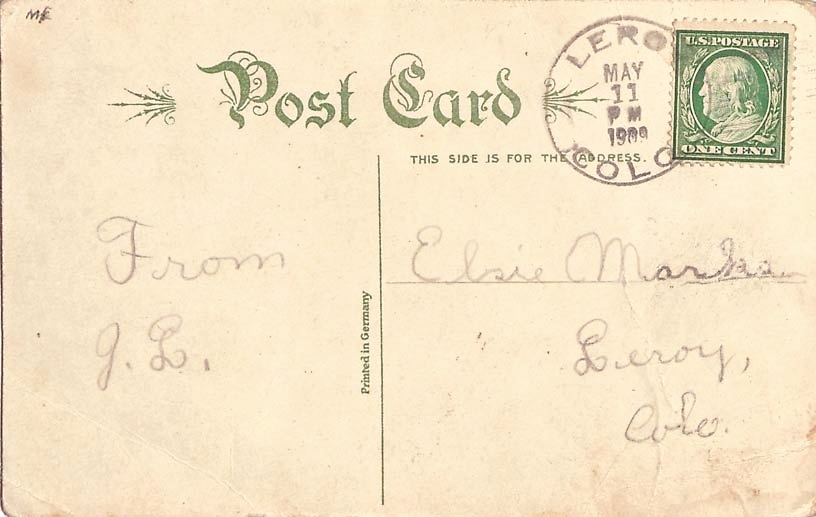 ME
Post Card
THIS SIDE IS FOR THE ADDRESS.
LEROY
MAY
11
PM
1909
COLO
U.S. POSTAGE
ONE CENT
From
J. L.
Printed in Germany
Elsie
Leroy,
Colo.